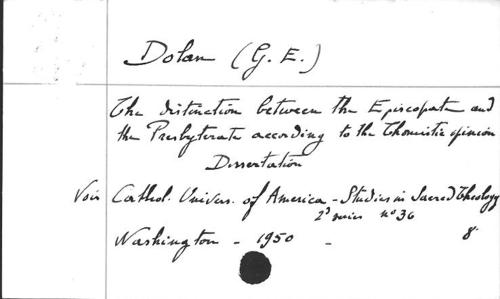 Dolan (G. E.)
The distinction between the Episcopate and
the Presbyterate according to the Thomistic opinion
Dissertation
Voir Cathol. Univers. of America - Studies in Sacred Theology
2d series nº 36
Washington - 1950 - 8º